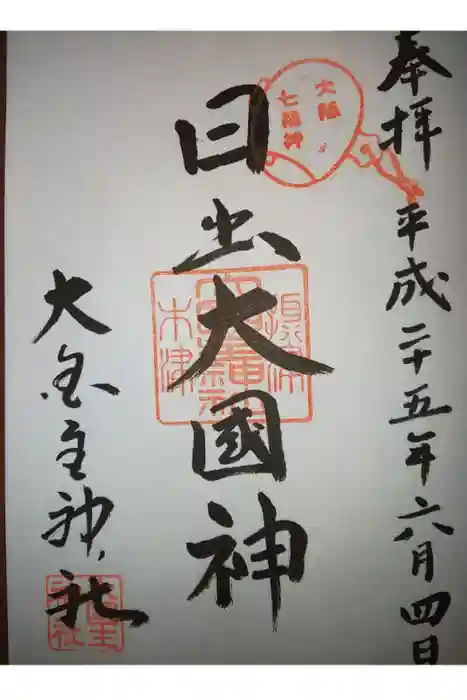 奉拝 平成二十五年六月四日
大阪
七福神
日出大國神
木津
大国主神社